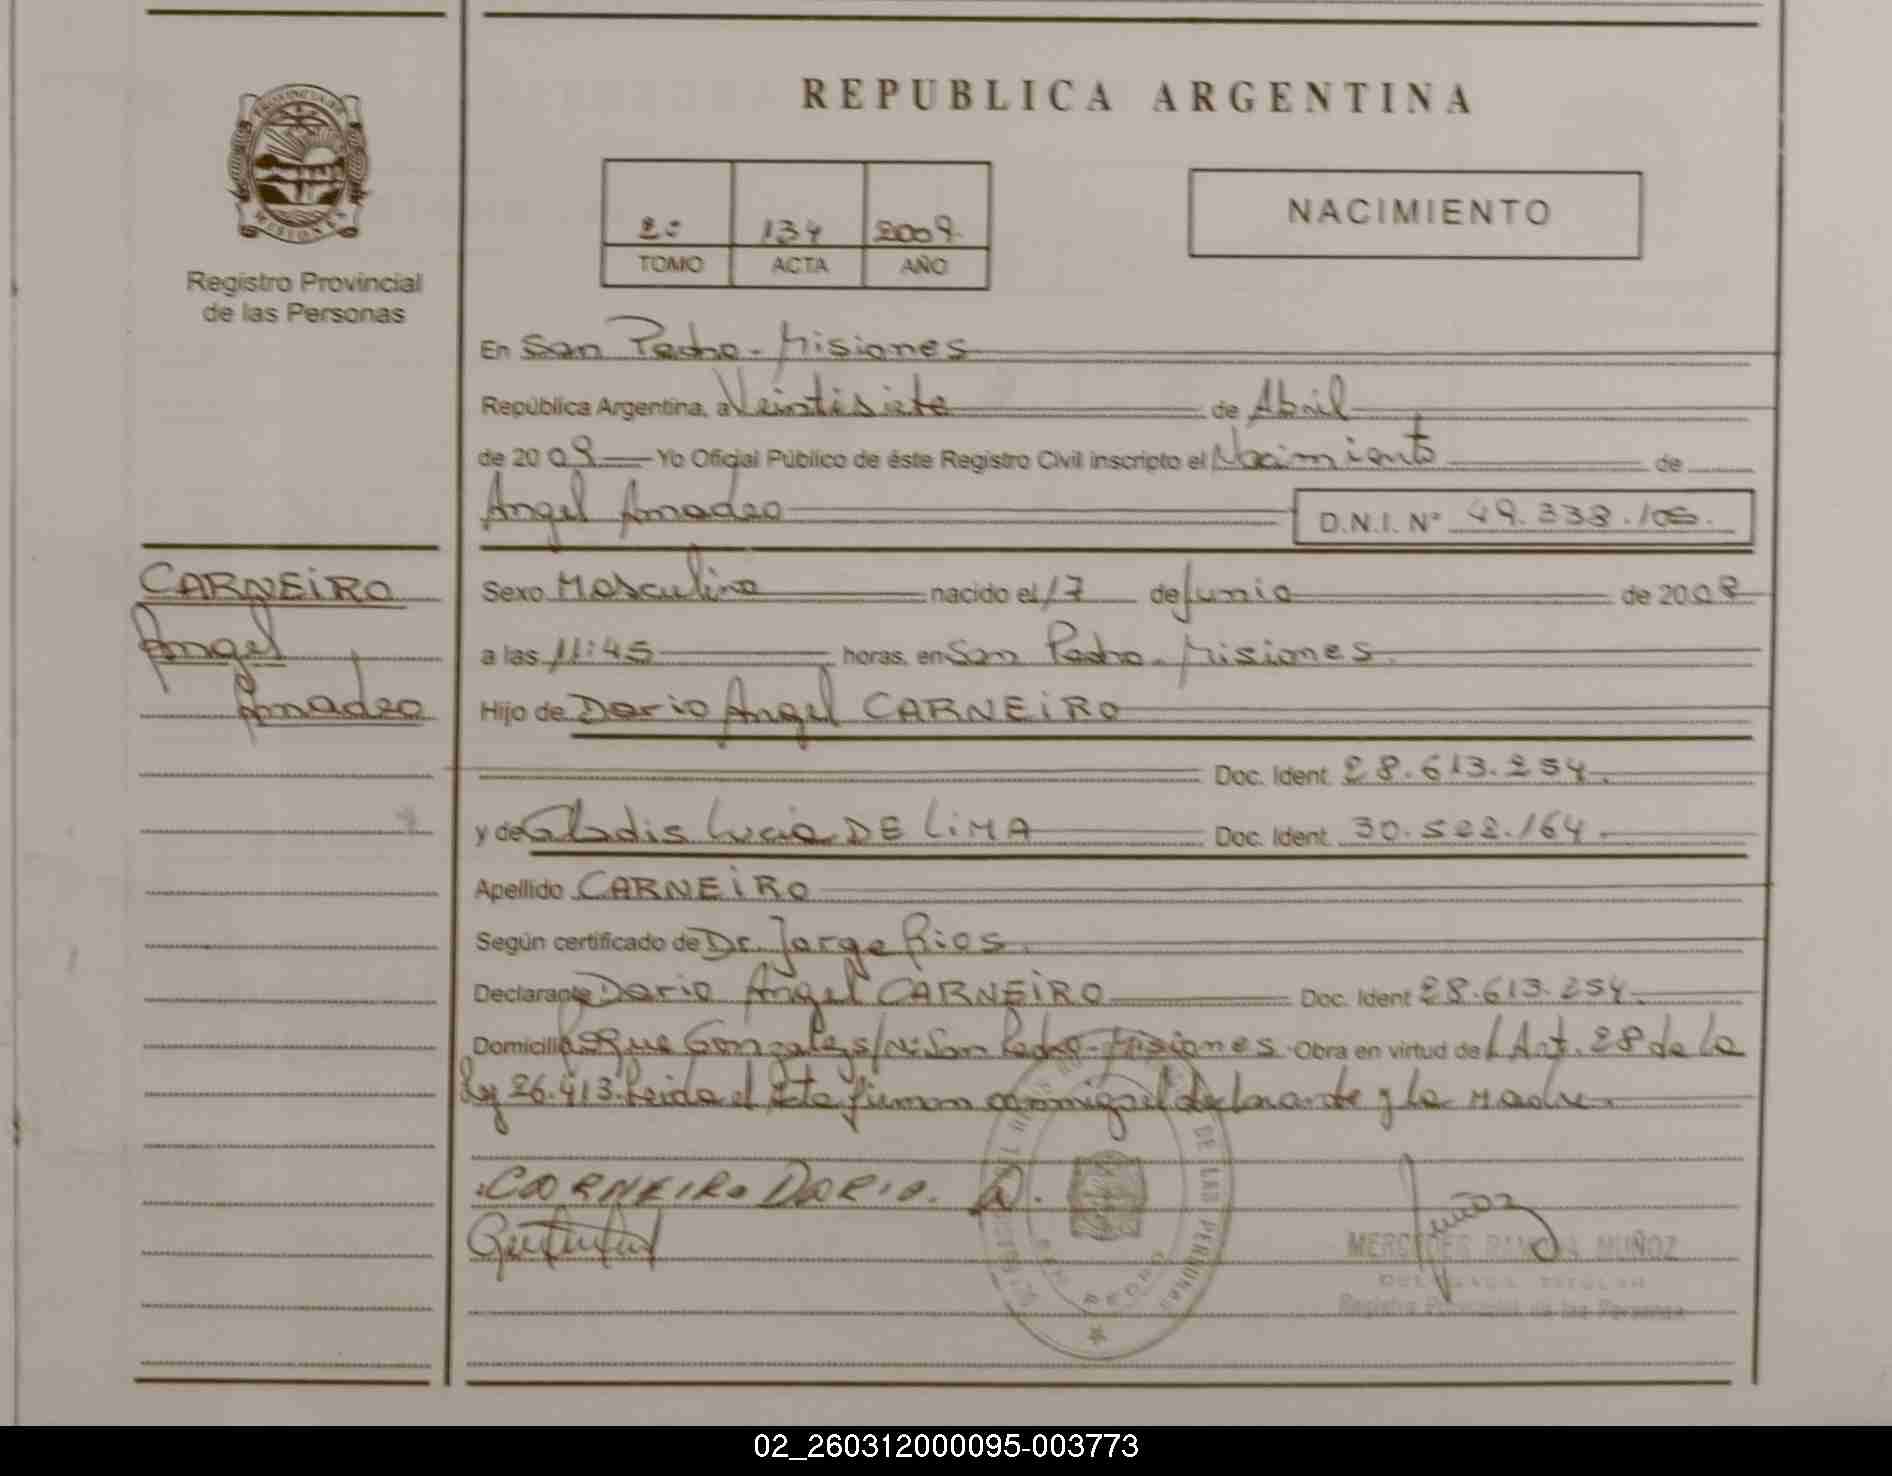 REPUBLICA ARGENTINA
PROVINCIA DE
MISIONES
Registro Provincial
de las Personas
2º 134 2009
TOMO ACTA AÑO
NACIMIENTO
En San Pedro - Misiones
República Argentina, a Veintisiete de Abril
de 2009 Yo Oficial Público de éste Registro Civil inscripto el Nacimiento de
Angel Amadeo D.N.I. Nº 49.333.105.
CARNEiRO
Angel
Amadeo
Sexo Masculino nacido el 17 de Junio de 2008
a las 11:45 horas, en San Pedro - Misiones.
Hijo de Dario Angel CARNEiRO
Doc. Ident. 28.613.254.
y de Gladis Lucia DE LiMA Doc. Ident. 30.522.164.
Apellido CARNEiRO
Según certificado de Dr. Jorge Rios.
Declarante Dario Angel CARNEiRO Doc. Ident 28.613.254.
Domicilio Roque Gonzalez s/n: San Pedro - Misiones. Obra en virtud del Art. 28 de la
Ley 26.413. Leida el Acta firman conmigo el declarante y la Madre.
CARNEIRO DARIO. A.
DE LAS PERSONAS
Muñoz
MERCEDES RAMONA MUÑOZ
TITULAR
Registro Provincial de las Personas
02_260312000095-003773